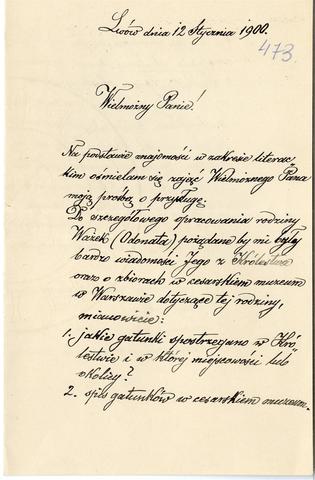 Lwów dnia 12 Stycznia 1900.
473
Wielmożny Panie!
Na podstawie znajomości w zakresie literac-
kim ośmielam się zająć Wielmożnego Pana
moją prośbą o przysługę.
Do szczegółowego opracowania rodziny
Ważek (Odonata) pożądane by mi były
bardzo wiadomości Jego z Królestwa
oraz o zbiorach w cesarskiem muzeum
w Warszawie dotyczące tej rodziny,
mianowicie:
1. jakie gatunki spostrzegano w Kró-
lestwie i w której miejscowości lub
okolicy?
2. spis gatunków w cesarskiem muzeum.